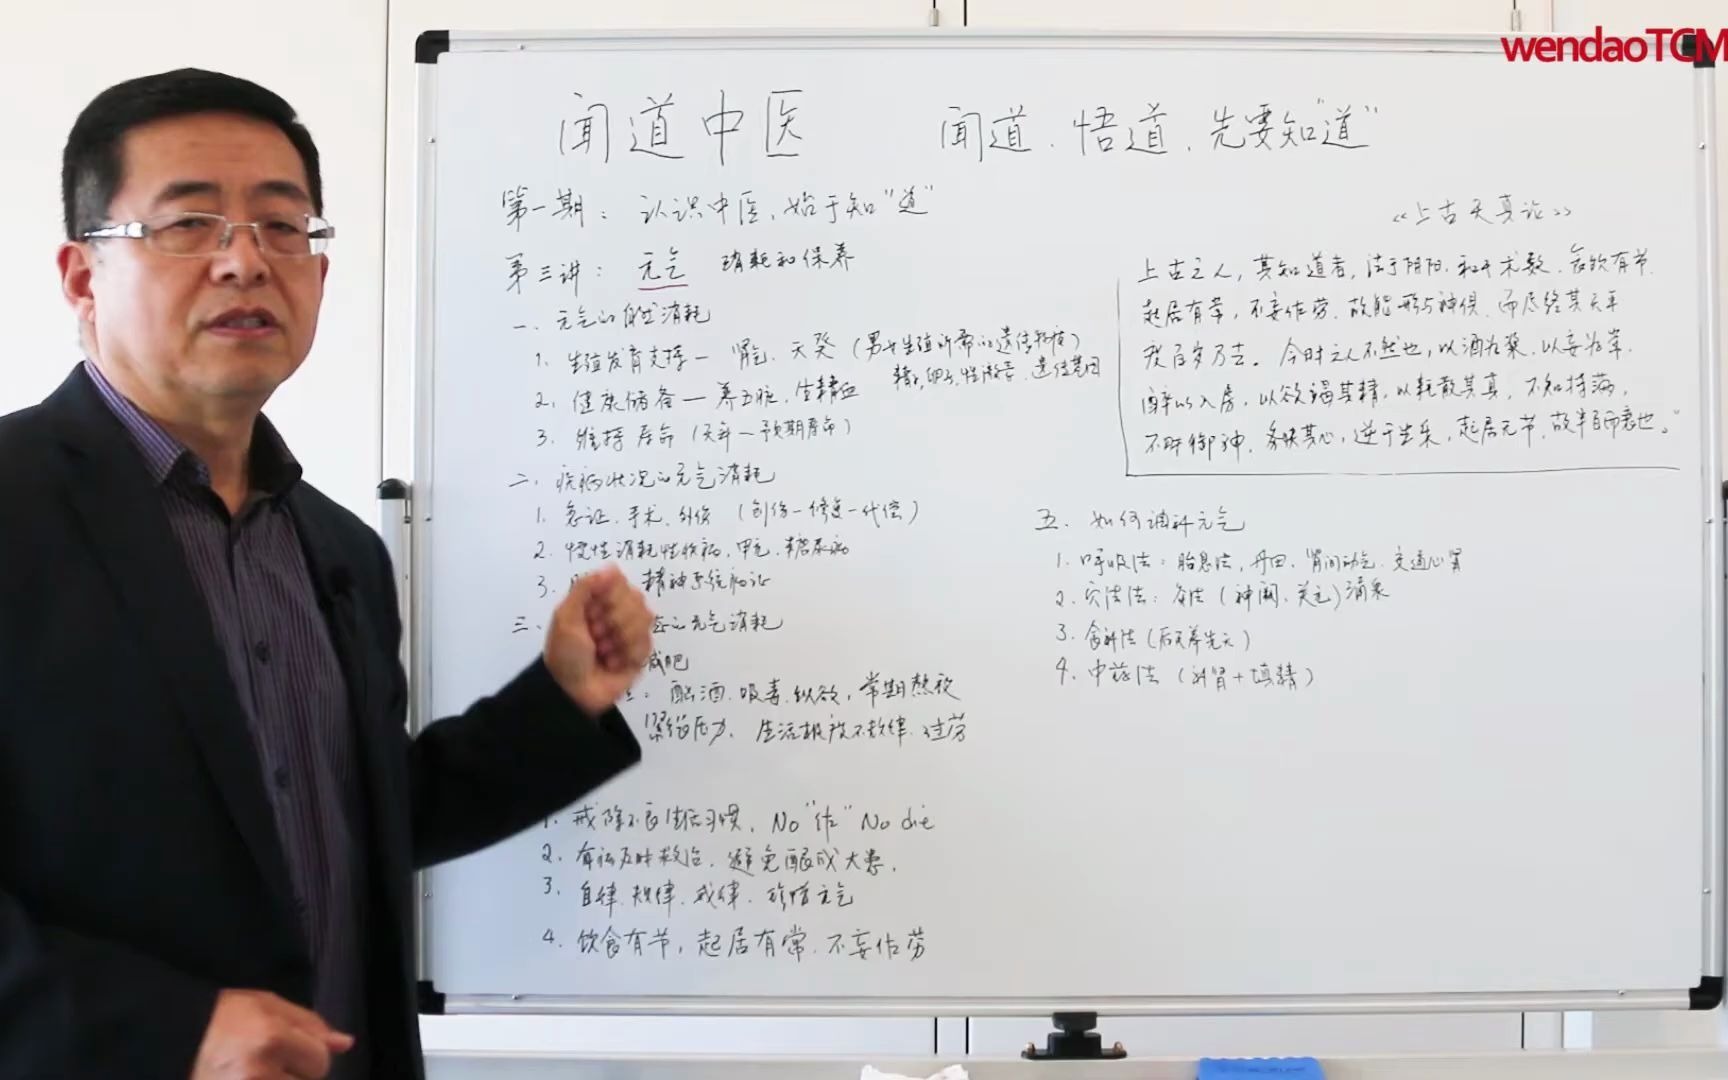 wendaoTCM
闻道中医
闻道、悟道、先要知"道"
第一期：认识中医，始于知"道"
第三讲：元气 消耗和保养
一、元气的自然消耗
1. 生殖发育支撑 — 肾气、天癸（男女生殖所需的遗传物质）
精子,卵子,性激素,遗传基因
2. 健康储备 — 养五脏,生精血
3. 维持寿命（天年—预期寿命）
二、疾病状况的元气消耗
1. 急证、手术、外伤（创伤—修复—代偿）
2. 慢性消耗性疾病,甲亢、糖尿病
3. 精神系统病证
三、态的元气消耗
减肥
酗酒、吸毒、纵欲，常期熬夜
紧绷压力、生活极度不规律、过劳
1. 戒除不良生活习惯，No "作" No die
2. 有病及时救治，避免酿成大患，
3. 自律、规律、戒律、珍惜元气
4. 饮食有节，起居有常、不妄作劳
《上古天真论》
上古之人，其知道者，法于阴阳，和于术数，食饮有节，
起居有常，不妄作劳，故能形与神俱，而尽终其天年
度百岁乃去。今时之人不然也，以酒为浆，以妄为常，
醉以入房，以欲竭其精，以耗散其真，不知持满，
不时御神，务快其心，逆于生乐，起居无节，故半百而衰也。"
五、如何调补元气
1. 呼吸法：胎息法，丹田、肾间动气、交通心肾
2. 穴法法：灸法（神阙、关元）涌泉
3. 食补法（后天养先天）
4. 中药法（补肾+填精）